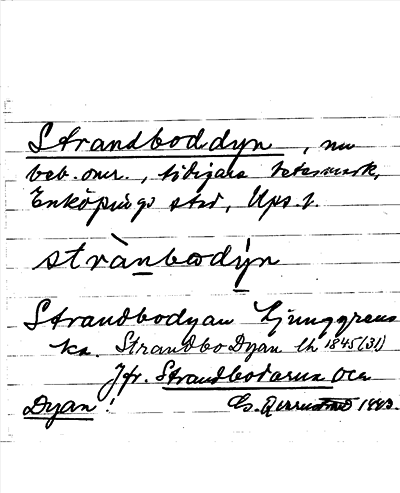 Strandboddyn, nu
beb.omr., tidigare betesmark,
Enköpings stad, Upps.l.
strànbodýn
Strandbodyan Ljunggrens
ka. Strandbo Dyan lh 1845 (31)
Jfr. Strandbodarna och
Dyan! 1983.